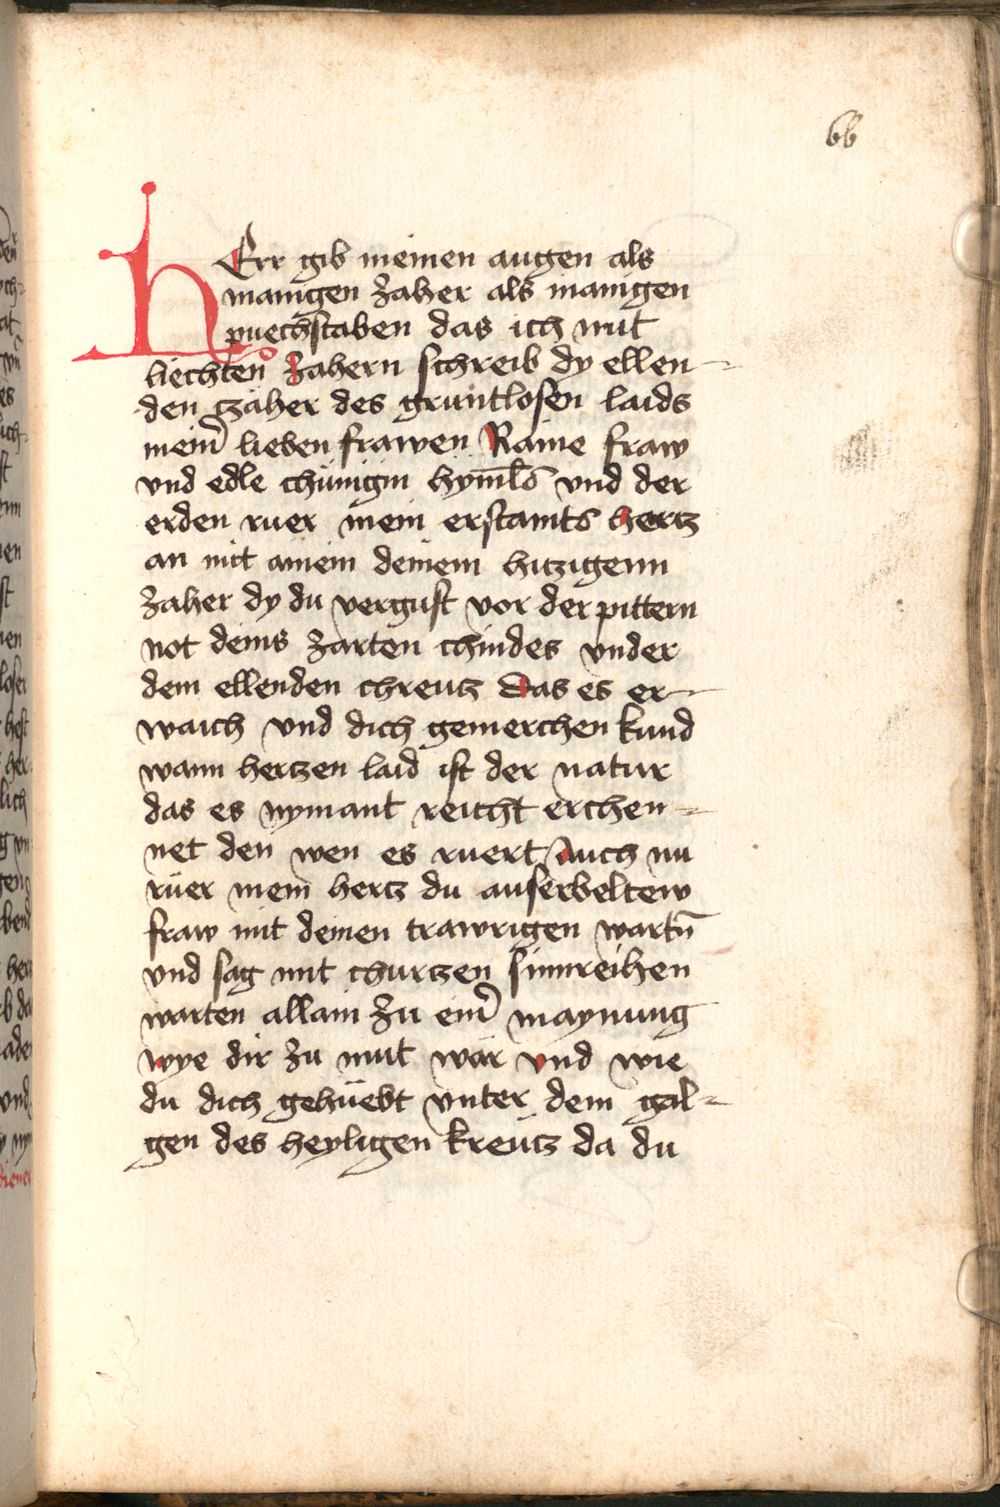 66
HErr gib meinen augen als
manigen zaher als manigen
puechstaben das ich mit
liechten zahern schreib dy ellen-
den czäher des gruntlosen laids
meīr lieben frawen Raine fraw
vnd edle chünigin hym̄ls vnd der
erden ruer mein erstamts hertz
an mit ainem deinem hitzigenn
zaher dy du vergust vor der pittern
not deins zarten chindes vnder
dem ellenden chreutz Das es er-
waich vnd dich gemerchen kund
wann hertzen laid ist der natur
das es nymant reicht erchen-
net den wen es ruert Auch nu
rüer mein hertz du auserbeltew
fraw mit deinen trawrigen wartn̄
vnd sag mit churtzen sinnreihen
warten allain zu eīr maynung
wye dir zu mut wär vnd wie
du dich gehüebt vnter dem gal-
gen des heyligen kreutz da du